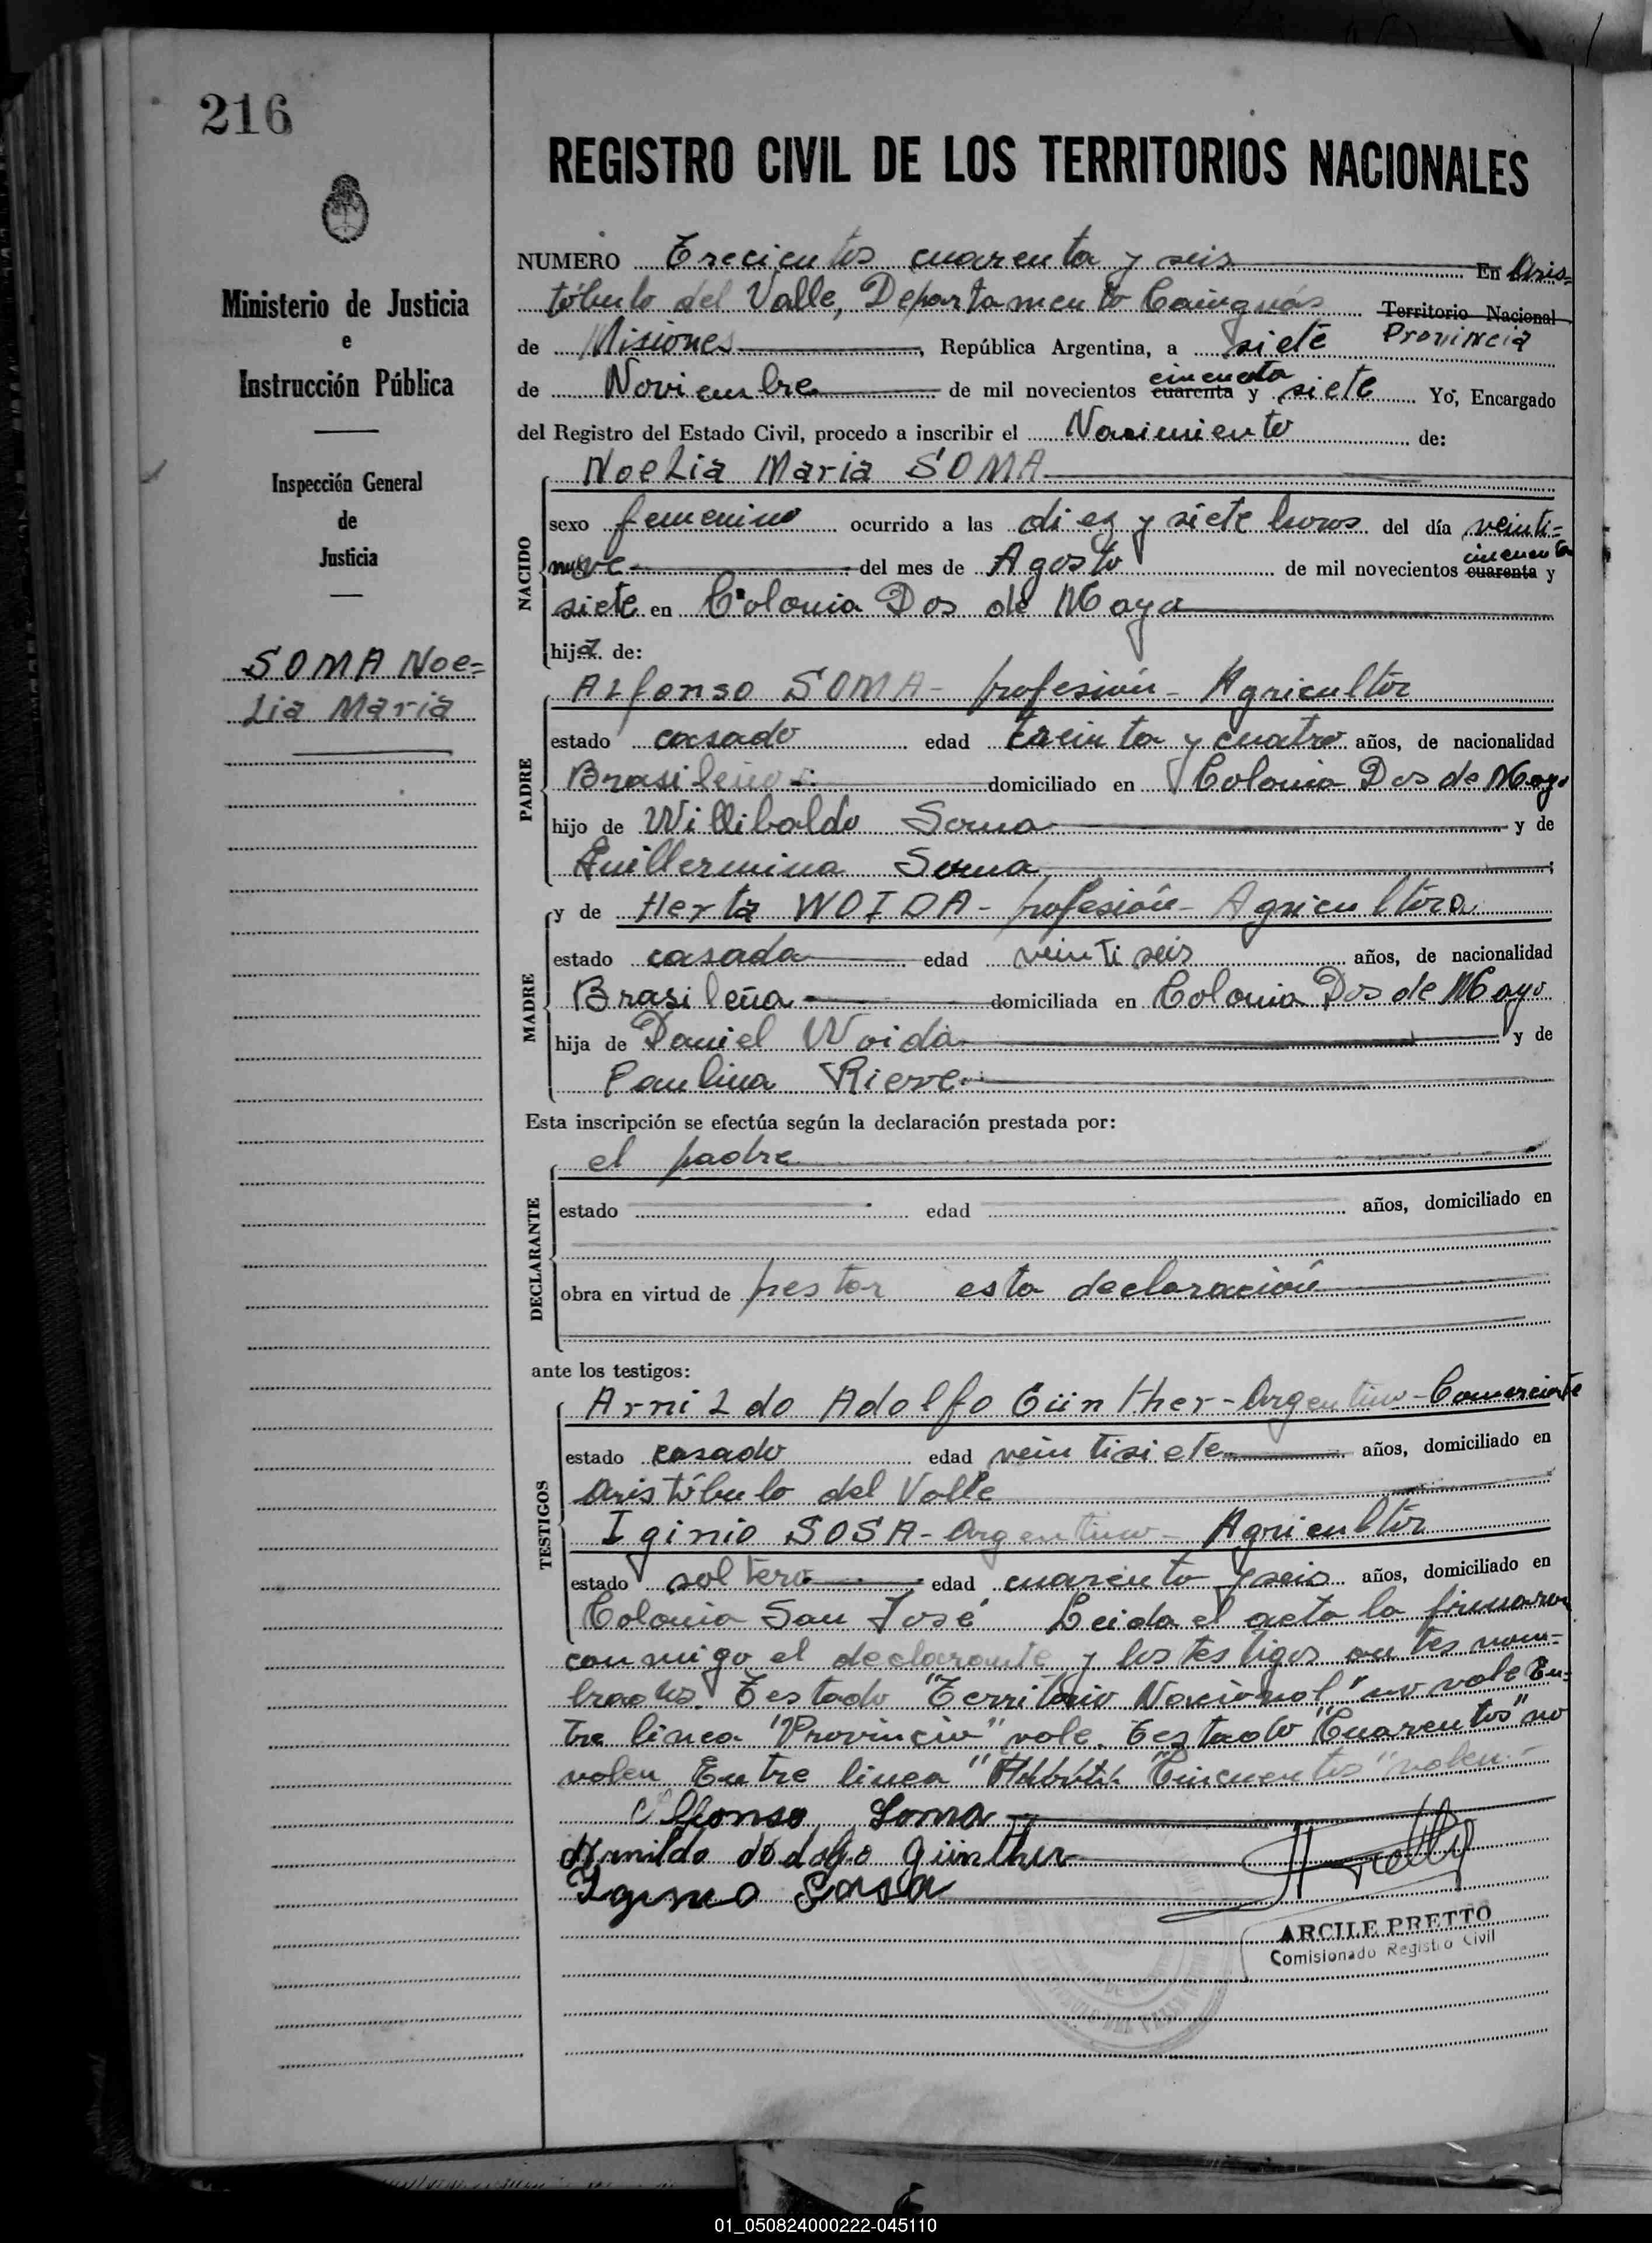 216
REGISTRO CIVIL DE LOS TERRITORIOS NACIONALES
Ministerio de Justicia
e
Instrucción Pública
Inspección General
de
Justicia
SOMA Noe=
Lia Maria
NUMERO Trecientos cuarenta y seis En Aris=
tóbulo del Valle, Departamento Cainguás Territorio Nacional
Provincia
de Misiones, República Argentina, a siete
cincuenta
de Noviembre de mil novecientos cuarenta y siete Yo, Encargado
del Registro del Estado Civil, procedo a inscribir el Nacimiento de:
NoeLia Maria SOMA
NACIDO
sexo femenino ocurrido a las diez y siete horas del día veinti=
cincuenta
nueve del mes de Agosto de mil novecientos cuarenta y
siete en Colonia Dos de Mayo
hija de:
PADRE
ALfonso SOMA - profesión - Agricultor
estado casado edad treinta y cuatro años, de nacionalidad
Brasileño domiciliado en Colonia Dos de Mayo
hijo de Willibaldo Soma y de
Guillermina Soma
MADRE
y de Herta WOIDA - profesión - Agricultora
estado casada edad veintiseis años, de nacionalidad
Brasileña domiciliada en Colonia Dos de Mayo
hija de Daniel Woida y de
Paulina Rieve
Esta inscripción se efectúa según la declaración prestada por:
DECLARANTE
el padre
estado edad años, domiciliado en
obra en virtud de prestar esta declaración
ante los testigos:
TESTIGOS
ArniLdo Adolfo Günther - Argentino - Comerciante
estado casado edad veintisiete años, domiciliado en
Aristóbulo del Valle
Iginio SOSA - Argentino - Agricultor
estado soltero edad cuarenta y seis años, domiciliado en
Colonia San José Leida el acta la firmaron
conmigo el declarante y los testigos antes nom=
brados. Testado "Territorio Nacional" no vale En=
tre linea "Provincia" vale. Testado "Cuarentas" no
valen Entre linea "Cincuentas" valen.-
Alfonso Soma
Arnildo Adolfo Günther
Iginio Sosa
ARCILE PRETTO
Comisionado Registro Civil
01_050824000222-045110